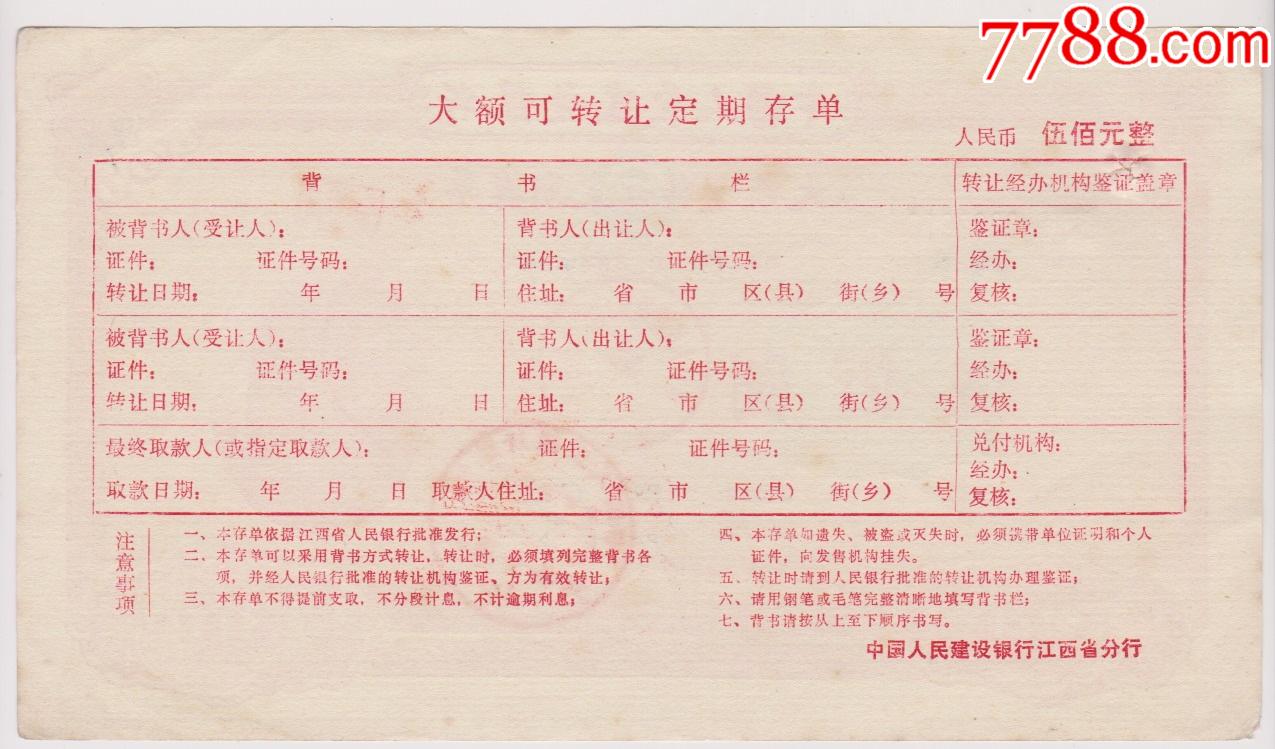 7788.com
大额可转让定期存单
人民币 伍佰元整
背 书 栏 转让经办机构鉴证盖章
被背书人(受让人): 背书人(出让人): 鉴证章:
证件: 证件号码: 证件: 证件号码: 经办:
转让日期: 年 月 日 住址: 省 市 区(县) 街(乡) 号 复核:
被背书人(受让人): 背书人(出让人): 鉴证章:
证件: 证件号码: 证件: 证件号码: 经办:
转让日期: 年 月 日 住址: 省 市 区(县) 街(乡) 号 复核:
最终取款人(或指定取款人): 证件: 证件号码: 兑付机构:
经办:
取款日期: 年 月 日 取款人住址: 省 市 区(县) 街(乡) 号 复核:
注意事项
一、本存单依据江西省人民银行批准发行;
二、本存单可以采用背书方式转让,转让时,必须填列完整背书各
项,并经人民银行批准的转让机构鉴证、方为有效转让;
三、本存单不得提前支取,不分段计息,不计逾期利息;
四、本存单如遗失、被盗或灭失时,必须携带单位证明和个人
证件,向发售机构挂失。
五、转让时请到人民银行批准的转让机构办理鉴证;
六、请用钢笔或毛笔完整清晰地填写背书栏;
七、背书请按从上至下顺序书写。
中国人民建设银行江西省分行